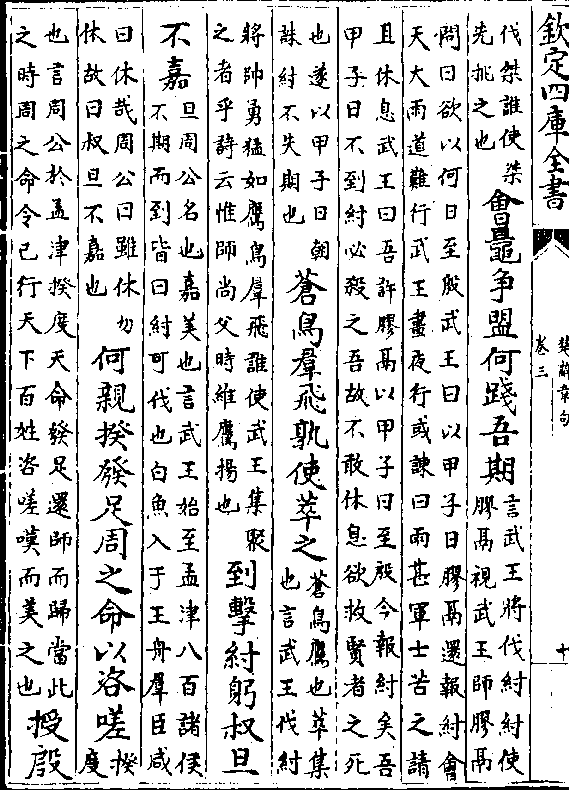 欽定四庫全書
楚辭章句
卷三
十
伐桀誰使桀
先挑之也
會鼂争盟何踐吾期
言武王將伐紂紂使
膠鬲視武王師膠鬲
問曰欲以何日至殷武王曰以甲子日膠鬲還報紂會
天大雨道難行武王晝夜行或諫曰雨甚軍士苦之請
且休息武王曰吾許膠鬲以甲子日至殷今報紂矣吾
甲子日不到紂必殺之吾故不敢休息欲救賢者之死
也遂以甲子日朝
誅紂不失期也
蒼鳥羣飛孰使萃之
蒼鳥鷹也萃集
也言武王伐紂
將帥勇猛如鷹鳥羣飛誰使武王集聚
之者乎詩云惟師尚父時維鷹揚也
到擊紂躬叔旦
不嘉
旦周公名也嘉美也言武王始至孟津八百諸侯
不期而到皆曰紂可伐也白魚入于王舟羣臣咸
曰休哉周公曰雖休勿
休故曰叔旦不嘉也
何親揆發足周之命以咨嗟
揆
度
也言周公於孟津揆度天命發足還師而歸當此
之時周之命令已行天下百姓咨嗟嘆而美之也
授殷